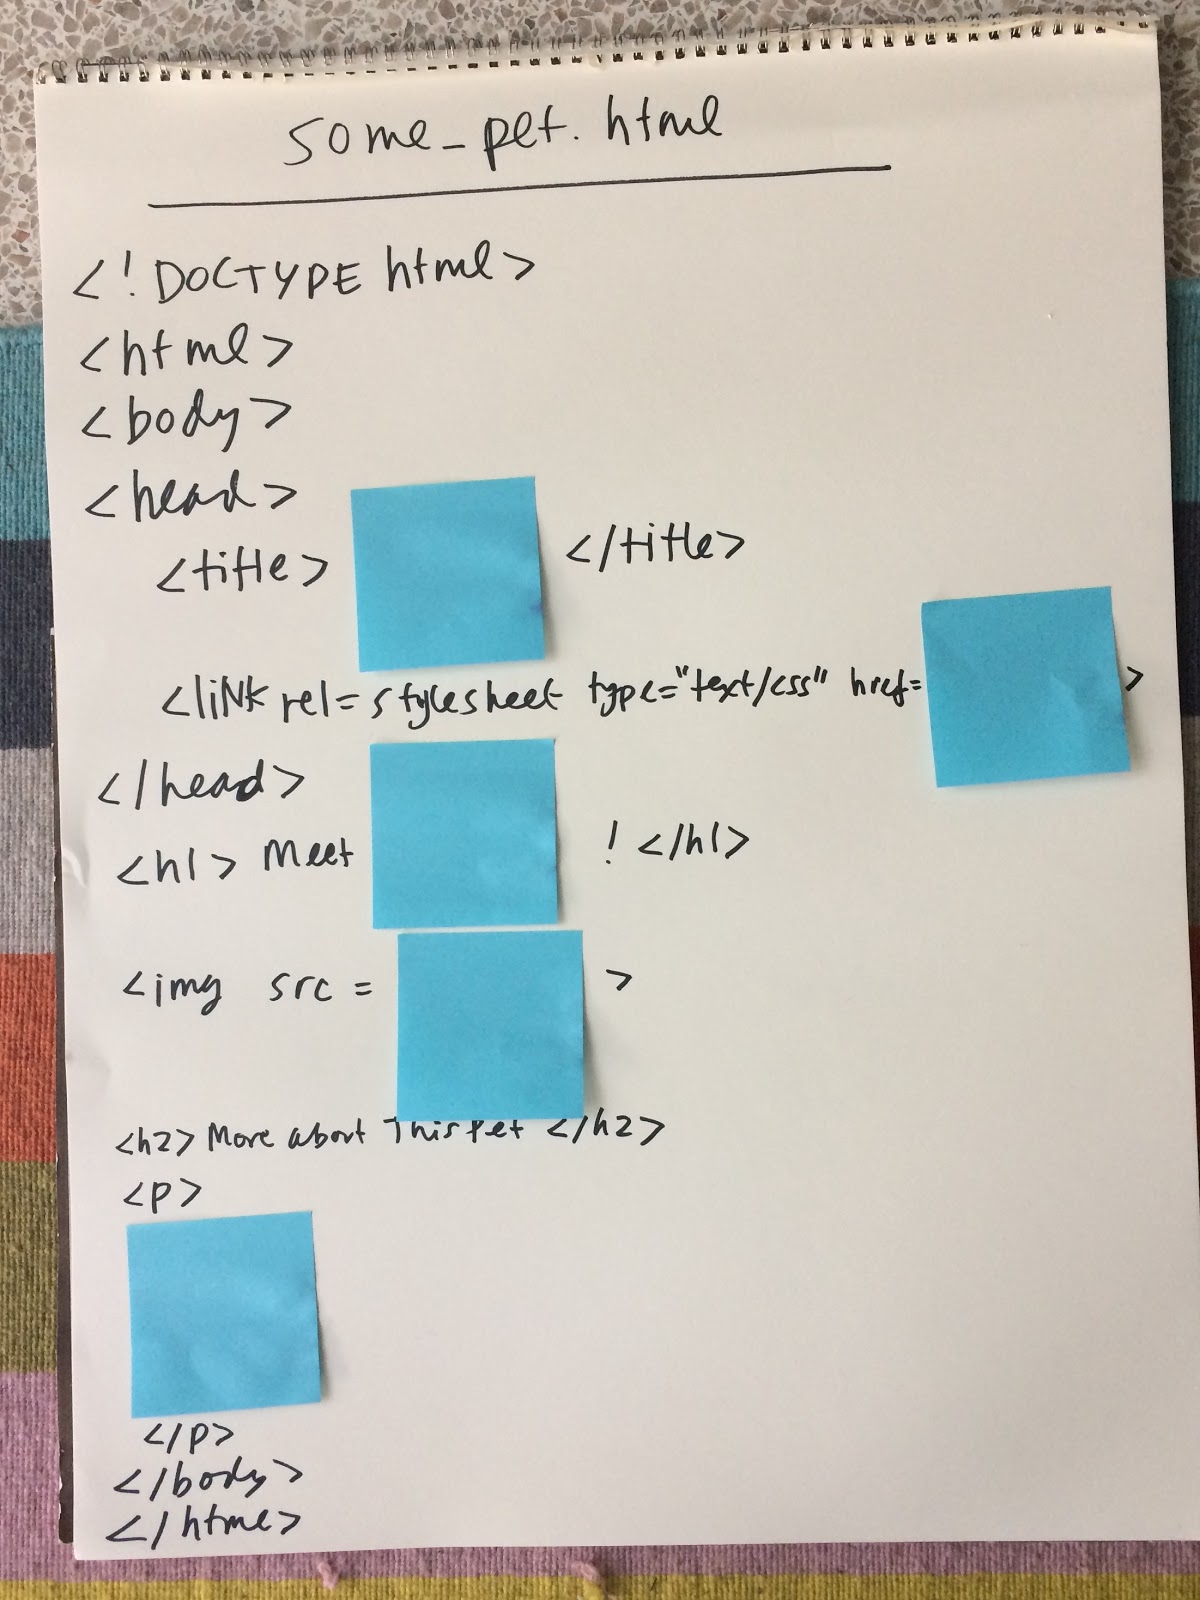 some_pet.html
<!DOCTYPE html>
<html>
<body>
<head>
<title> </title>
<link rel=stylesheet type="text/css" href= >
</head>
<h1> Meet ! </h1>
<img src = >
<h2> More about This Pet </h2>
<p>
</p>
</body>
</html>